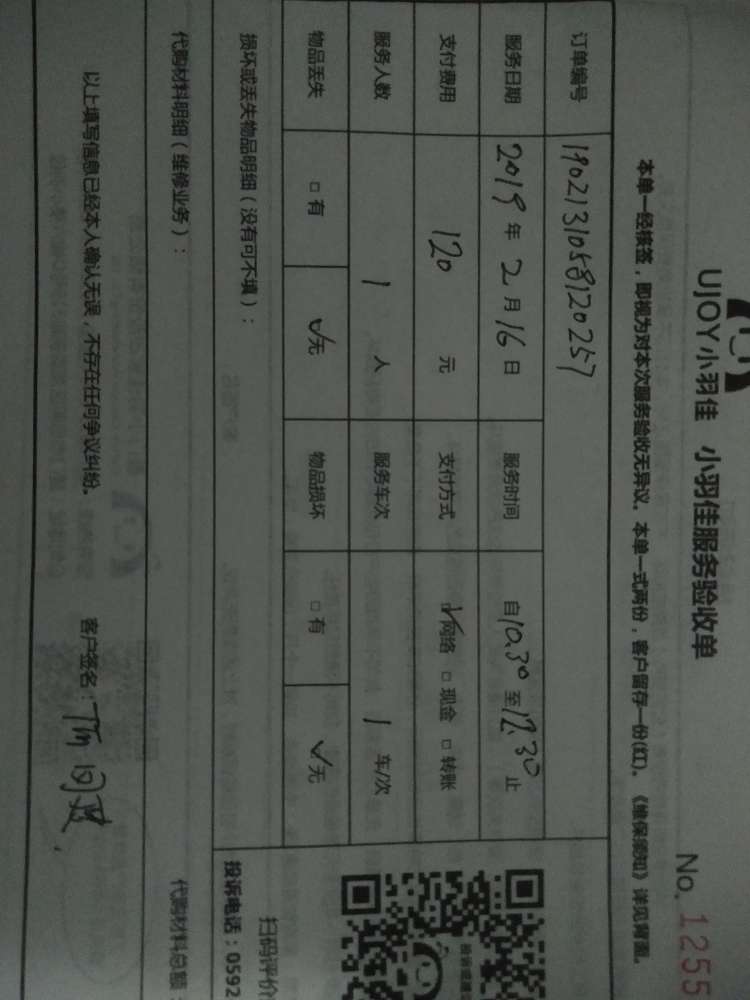 UJOY小羽佳 小羽佳服务验收单
No. 1255
本单一经核签，即视为对本次服务验收无异议。本单一式两份，客户留存一份(红)。《维保须知》详见背面。
订单编号 1902131058120257
服务日期 2019年2月16日 服务时间 自10.30至12.30止
支付费用 120 元 支付方式 ☑网络 □现金 □转账
服务人数 1 人 服务车次 1 车/次
物品丢失 □有 ☑无 物品损坏 □有 ☑无
损坏或丢失物品明细（没有可不填）：
扫码评价
投诉电话：0592
代购材料明细（维修业务）： 代购材料总额：
以上填写信息已经本人确认无误，不存在任何争议纠纷。 客户签名：